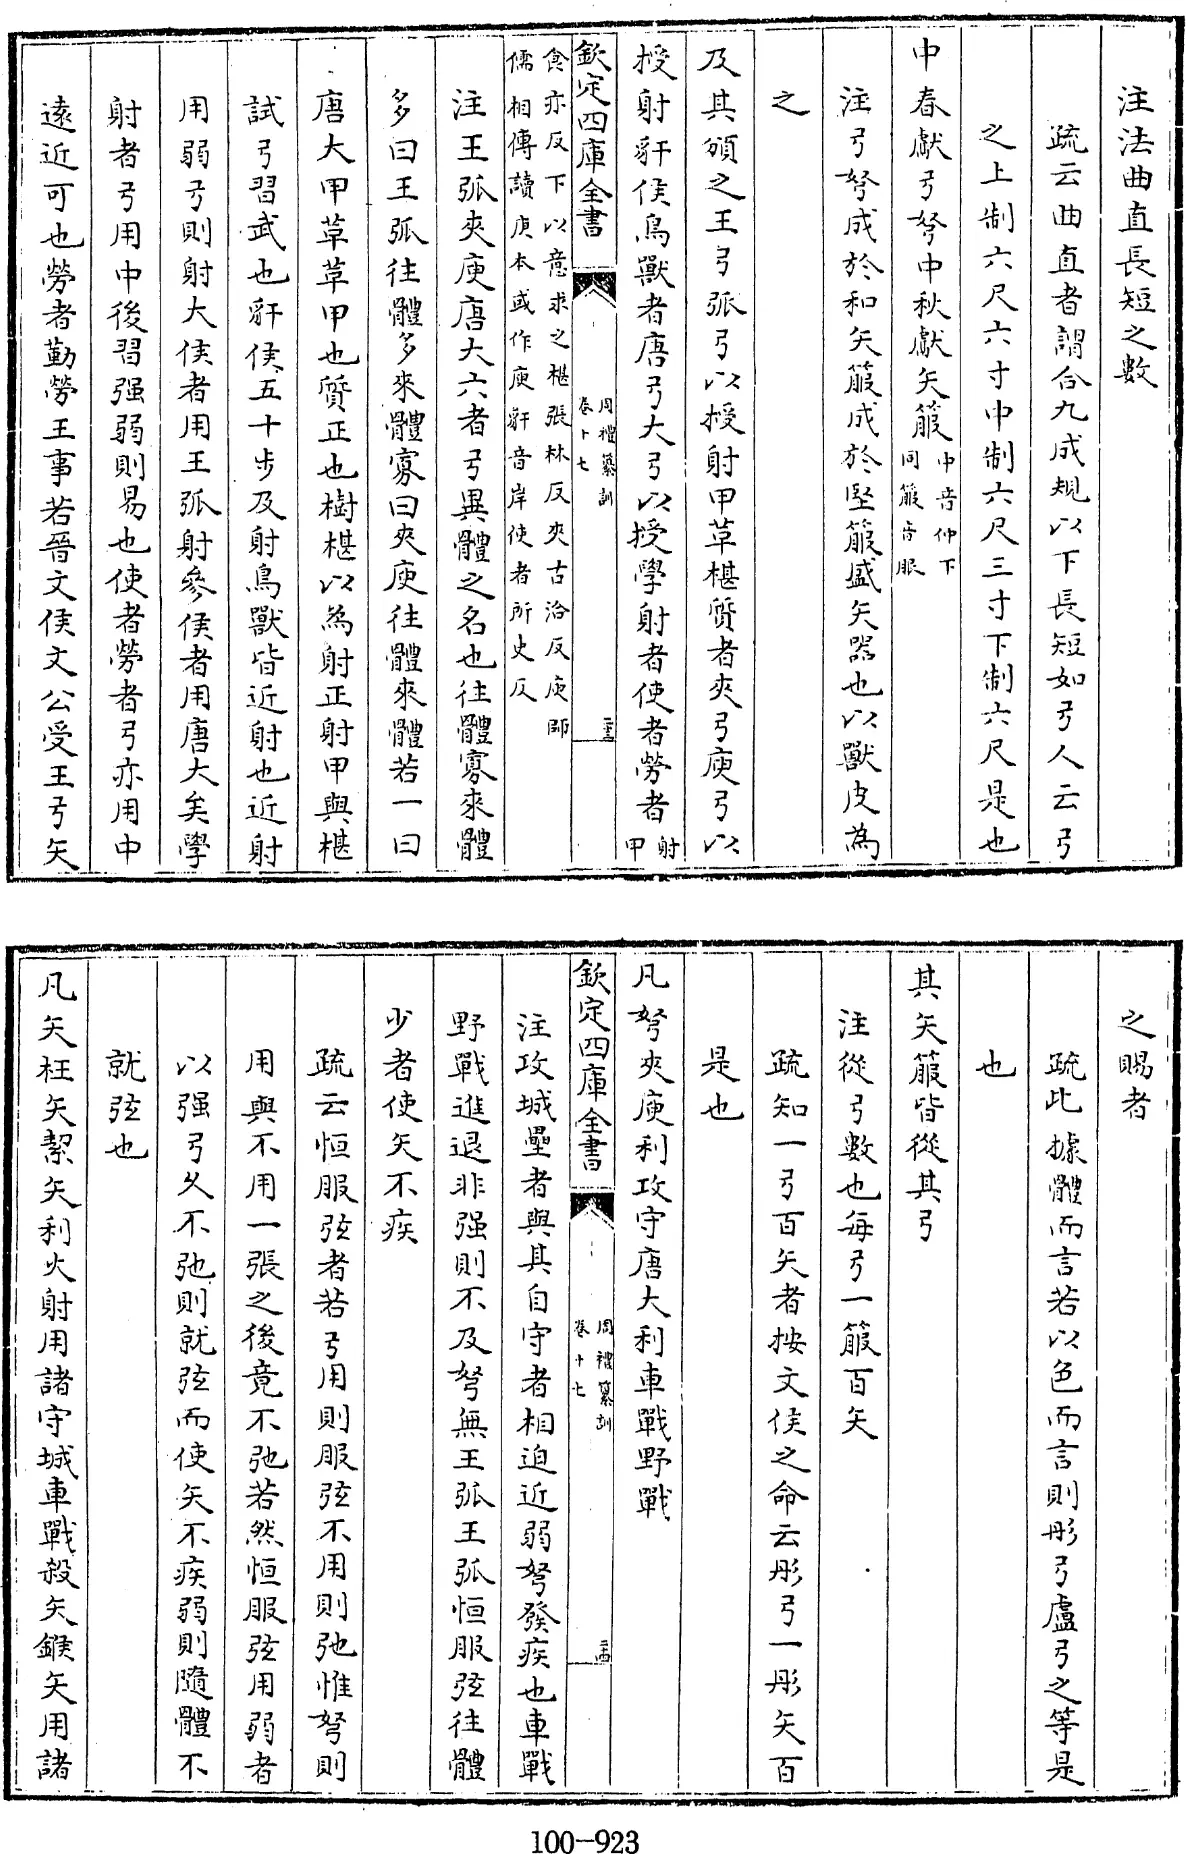 注法曲直長短之數
疏云曲直者謂合九成規以下長短如弓人云弓
之上制六尺六寸中制六尺三寸下制六尺是也
中春獻弓弩中秋獻矢箙中音仲下
同箙音服
注弓弩成於和矢箙成於堅箙盛矢器也以獸皮為
之
及其頒之王弓弧弓以授射甲革椹質者夾弓庾弓以
授射豻侯鳥獸者唐弓大弓以授學射者使者勞者射
甲
欽定四庫全書
周禮纂訓
卷十七
二十三
食亦反下以意求之椹張林反夾古洽反庾師
儒相傳讀庾本或作庾豻音岸使者所史反
注王弧夾庾唐大六者弓異體之名也往體寡來體
多曰王弧往體多來體寡曰夾庾往體來體若一曰
唐大甲革革甲也質正也樹椹以為射正射甲與椹
試弓習武也豻侯五十步及射鳥獸皆近射也近射
用弱弓則射大侯者用王弧射參侯者用唐大矣學
射者弓用中後習强弱則易也使者勞者弓亦用中
遠近可也勞者勤勞王事若晉文侯文公受王弓矢
之賜者
疏此據體而言若以色而言則彤弓盧弓之等是
也
其矢箙皆從其弓
注從弓數也每弓一箙百矢
疏知一弓百矢者按文侯之命云彤弓一彤矢百
是也
凡弩夾庾利攻守唐大利車戰野戰
欽定四庫全書
周禮纂訓
卷十七
二十四
注攻城壘者與其自守者相迫近弱弩發疾也車戰
野戰進退非强則不及弩無王弧王弧恒服弦往體
少者使矢不疾
疏云恒服弦者若弓用則服弦不用則弛惟弩則
用與不用一張之後竟不弛若然恒服弦用弱者
以强弓久不弛則就弦而使矢不疾弱則隨體不
就弦也
凡矢枉矢絜矢利火射用諸守城車戰殺矢鍭矢用諸
100-923